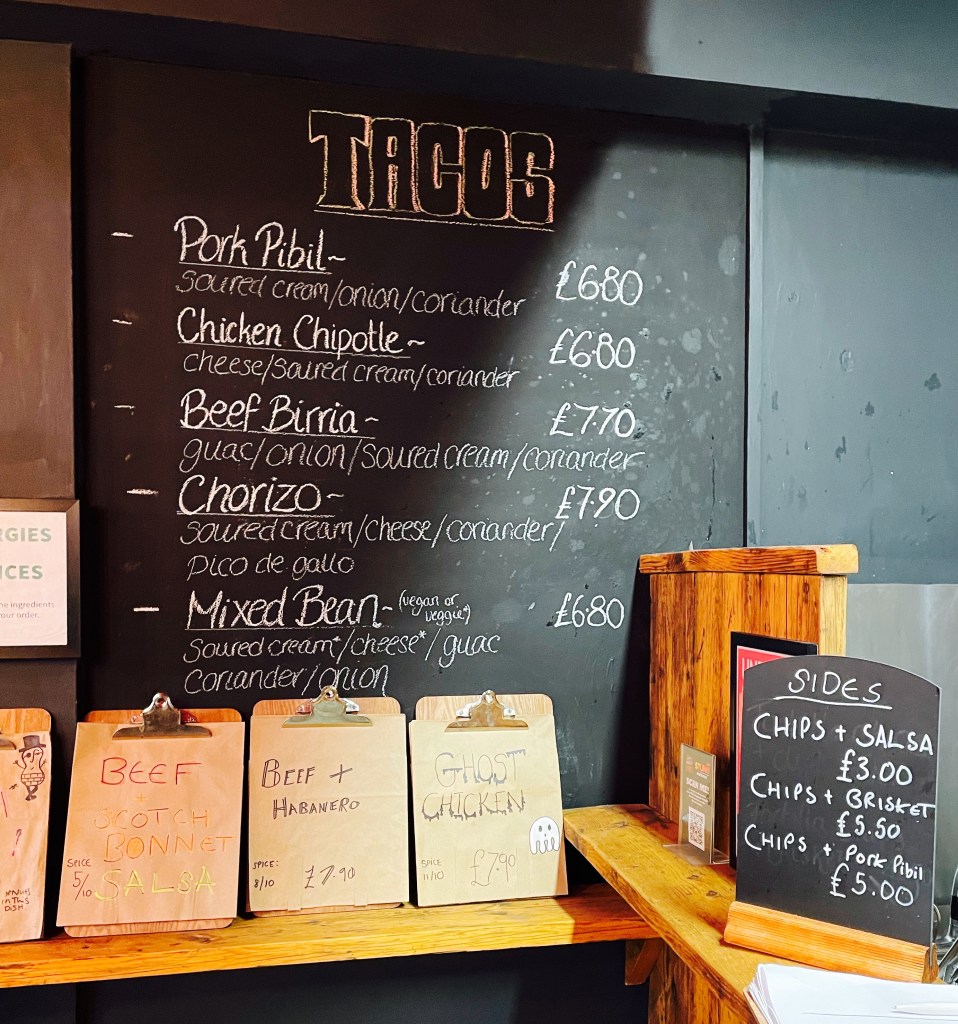 TACOS
Pork Pibil~
£6.80
soured cream/onion/coriander
Chicken Chipotle~
£6.80
cheese/soured cream/coriander
Beef Birria~
£7.70
guac/onion/soured cream/coriander
Chorizo~
£7.90
soured cream/cheese/coriander/
pico de gallo
Mixed Bean~
(vegan or
veggie)
£6.80
soured cream*/cheese*/guac
coriander/onion
RGIES
ICES
he ingredients
your order.
?
IN THIS
DISH
BEEF
+
SCOTCH
BONNET
SALSA
SPICE
5/10
BEEF +
HABANERO
SPICE:
8/10
£7.90
GHOST
CHICKEN
SPICE
11/10
£7.90
SIDES
CHIPS + SALSA
£3.00
CHIPS + BRISKET
£5.50
CHIPS + Pork Pibil
£5.00